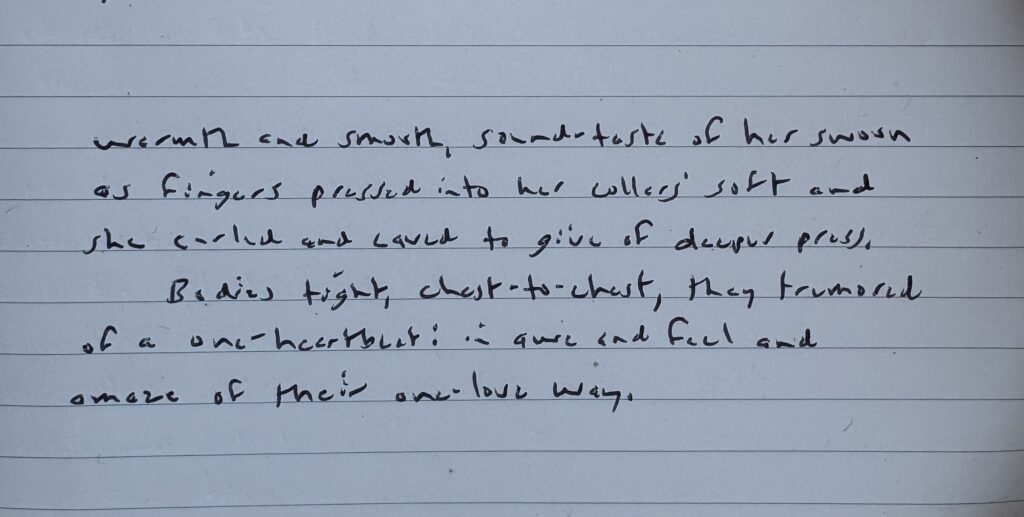 warmth and smooth, sound-taste of her swoon
as fingers pressed into her collers' soft and
she curled and caved to give of deeper press.
Bodies tight, chest-to-chest, they tremored
of a one-heartbeat: in awe and feel and
amaze of their one-love way.